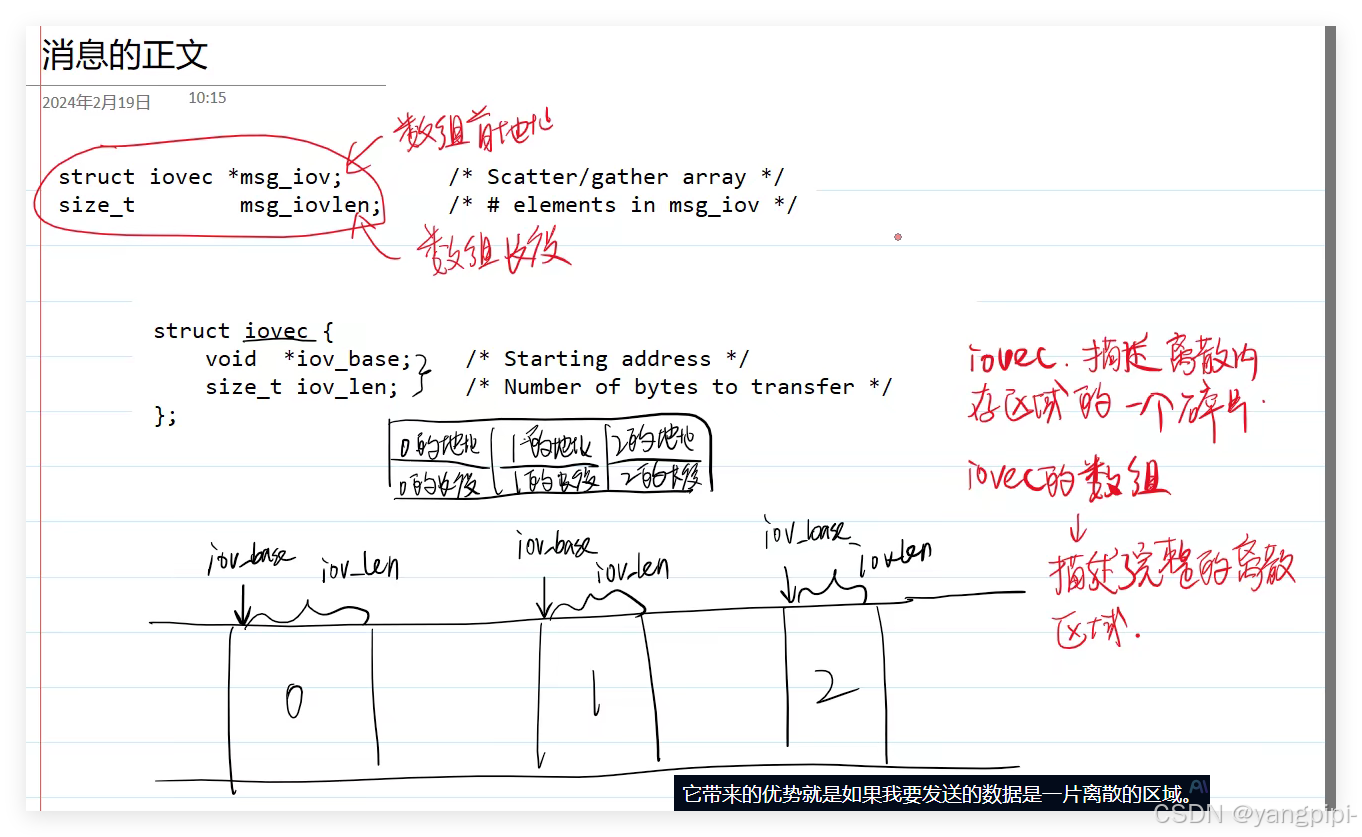 消息的正文
2024年2月19日 10:15
数组首地址
struct iovec *msg_iov; /* Scatter/gather array */
size_t msg_iovlen; /* # elements in msg_iov */
数组长度
struct iovec {
void *iov_base; /* Starting address */
size_t iov_len; /* Number of bytes to transfer */
};
iovec. 描述离散内
存区域的一个碎片.
0的地址 1的地址 2的地址
0的长度 1的长度 2的长度
iovec的数组
描述了完整的离散
区域.
iov_base iov_len iov_base iov_len iov_base iov_len
0 1 2
它带来的优势就是如果我要发送的数据是一片离散的区域。
CSDN @yangpipi-